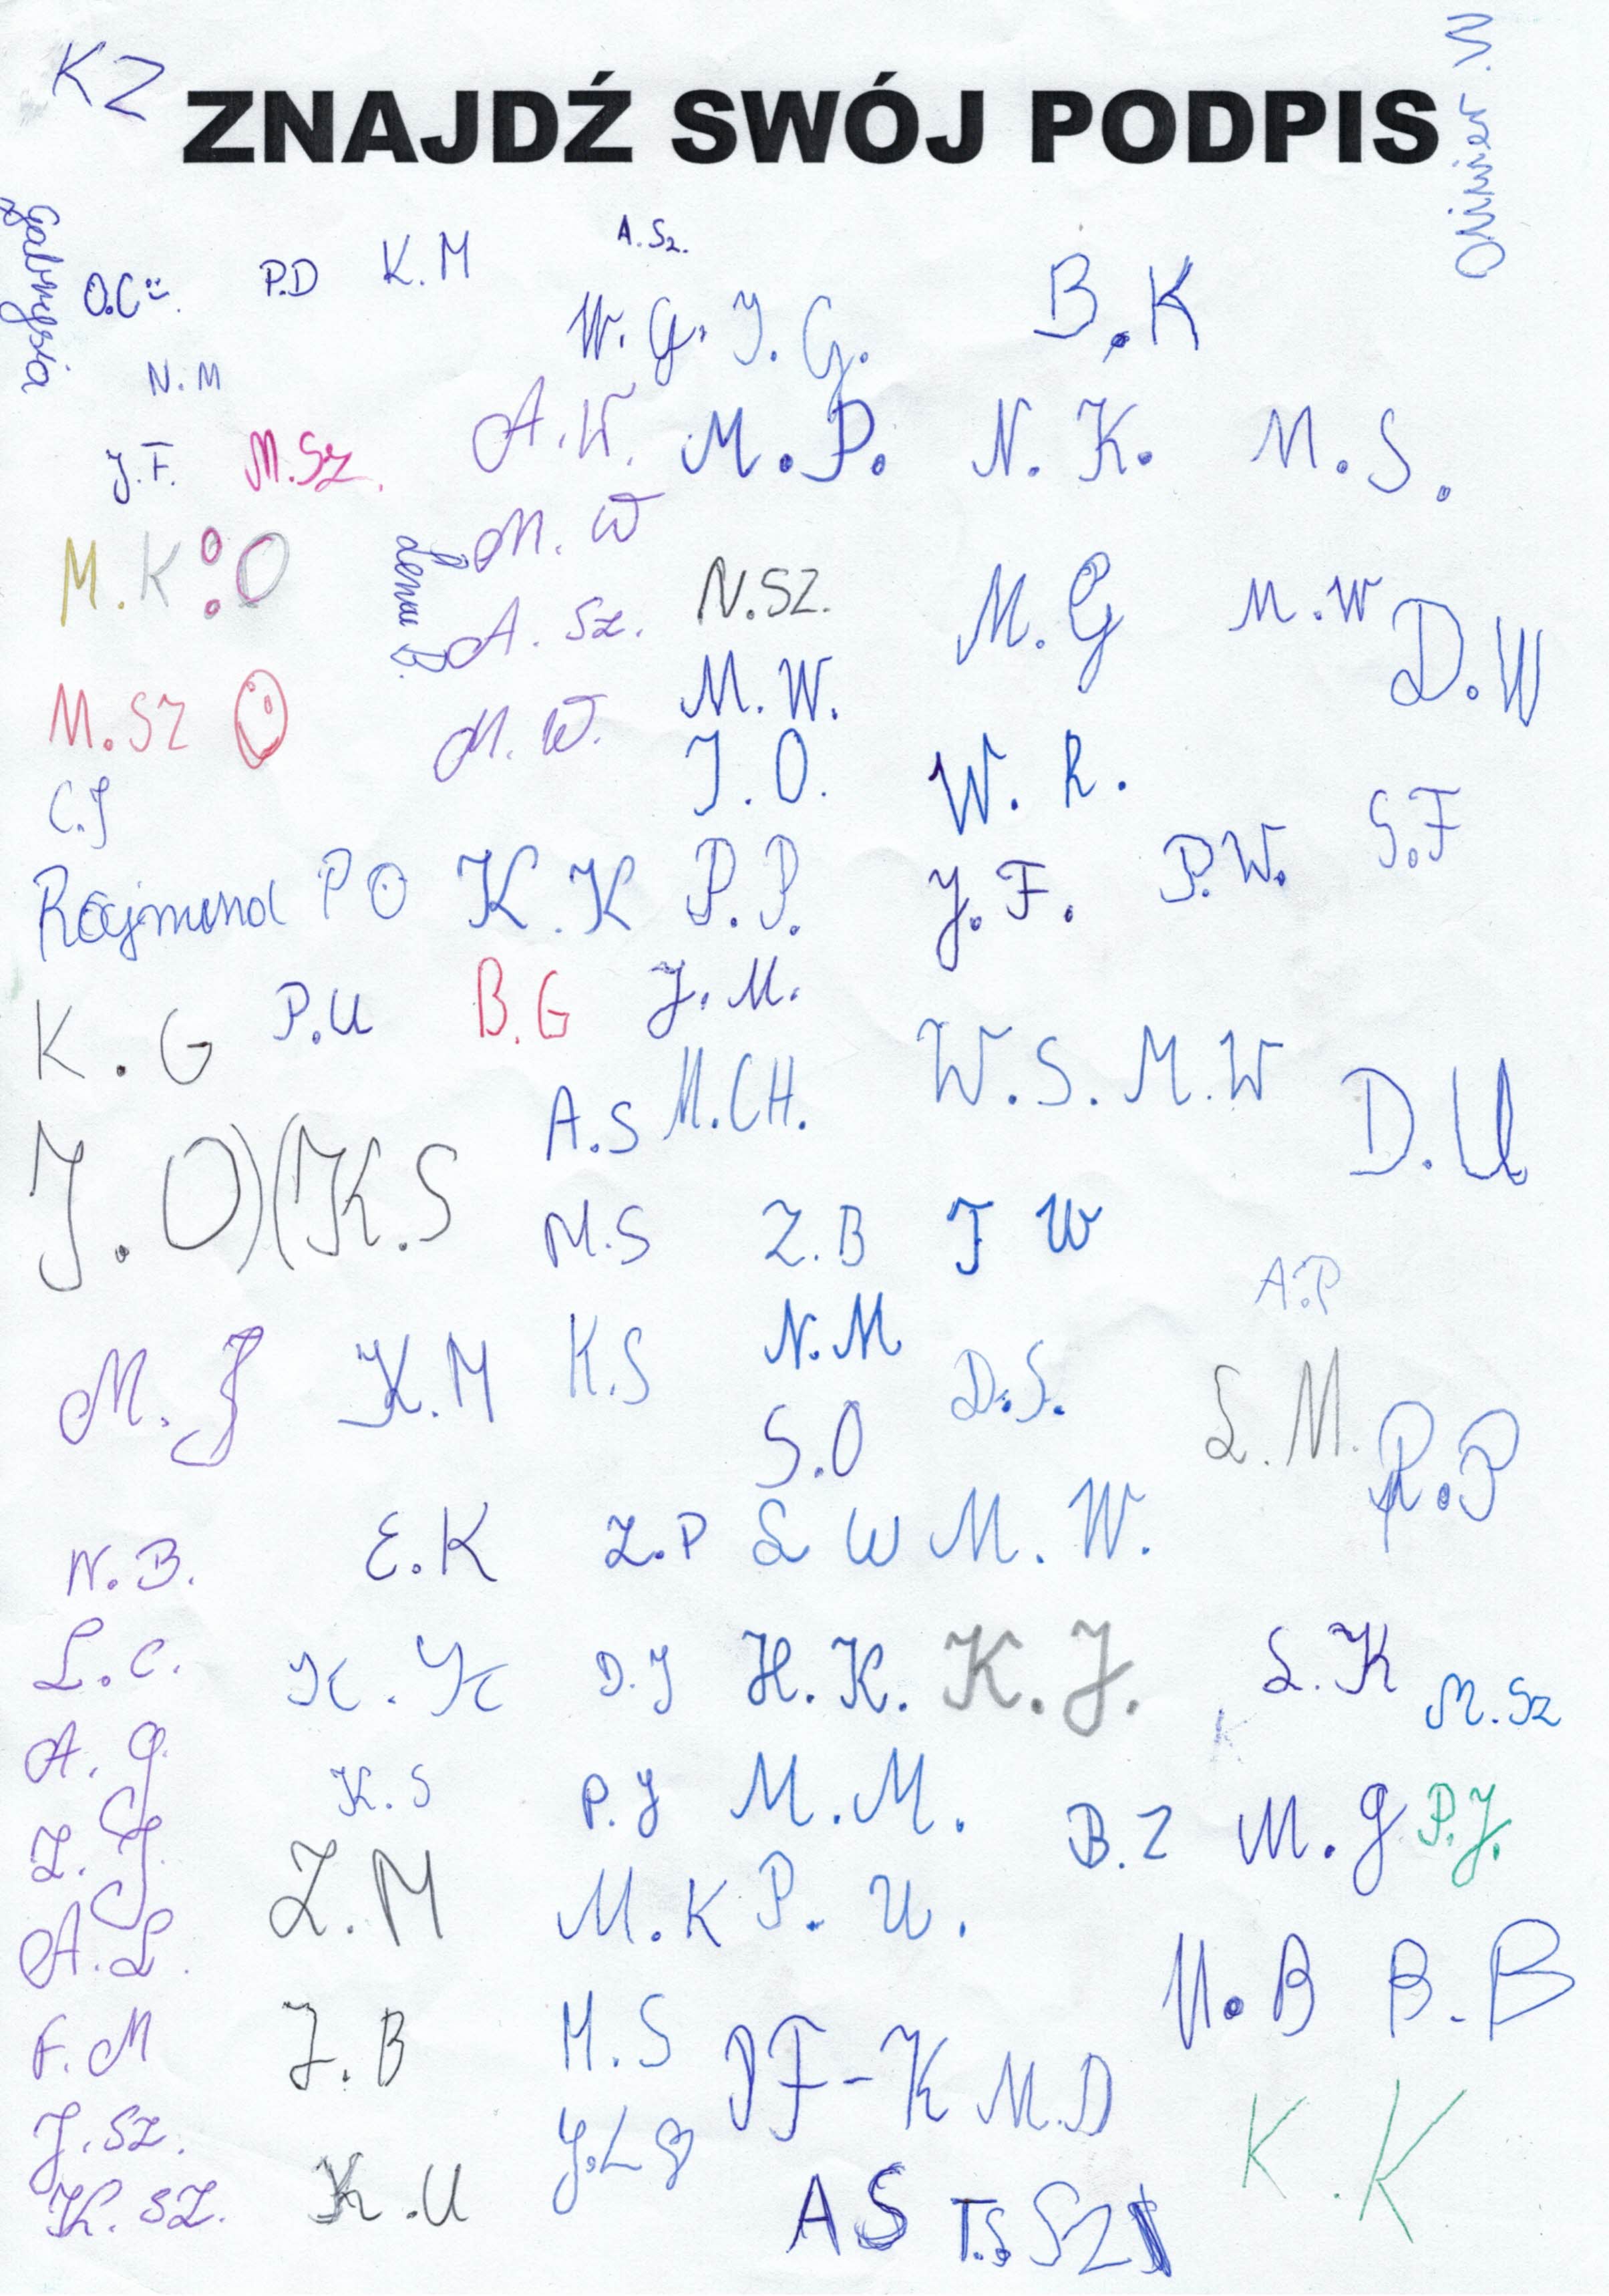 KZ
ZNAJDŹ SWÓJ PODPIS
Oliwier .W
Gabrysia
O.C
P.D
K.M
A.Sz.
W.G.
J.G.
B.K
N.M
J.F.
M.Sz.
A.W.
M.P.
N.K.
M.S.
M.K:O
Lena B.
M.W
A.Sz.
N.SZ.
M.G
M.W
D.W
M.SZ
M.W.
M.W.
C.J
J.O.
W.R.
S.F
Rajmund
PO
K.K
P.P.
J.F.
P.W.
K.G
P.U
B.G
J.M.
J.O)(K.S
A.S
M.CH.
W.S.
M.W
D.U
M.S
Z.B
J W
A.P
M.J
K.M
K.S
N.M
D.S.
S.O
L.M.
R.P
N.B.
E.K
Z.P
L W
M.W.
L.C.
K.K
D.J
H.K.
K.J.
L.K
K
M.Sz
A.G.
K.S
P.J
M.M.
B.Z
M.G
P.J.
Z.J.
Z.M
M.K
P.U.
A.L.
M.B
B.B
F.M
J.B
M.S
JF-K
M.D
K.K
J.SZ.
J.L
K.SZ.
K.U
A S
T.S
SZ